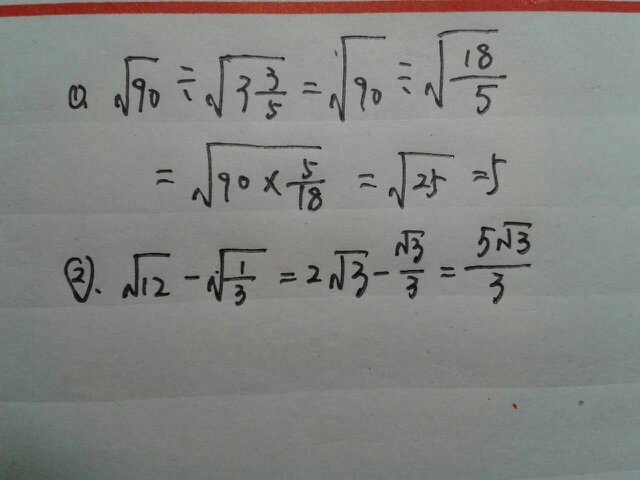 ① √90 ÷ √(3 3/5) = √90 ÷ √(18/5)
= √(90 × 5/18) = √25 = 5
②. √12 - √(1/3) = 2√3 - √3/3 = 5√3/3